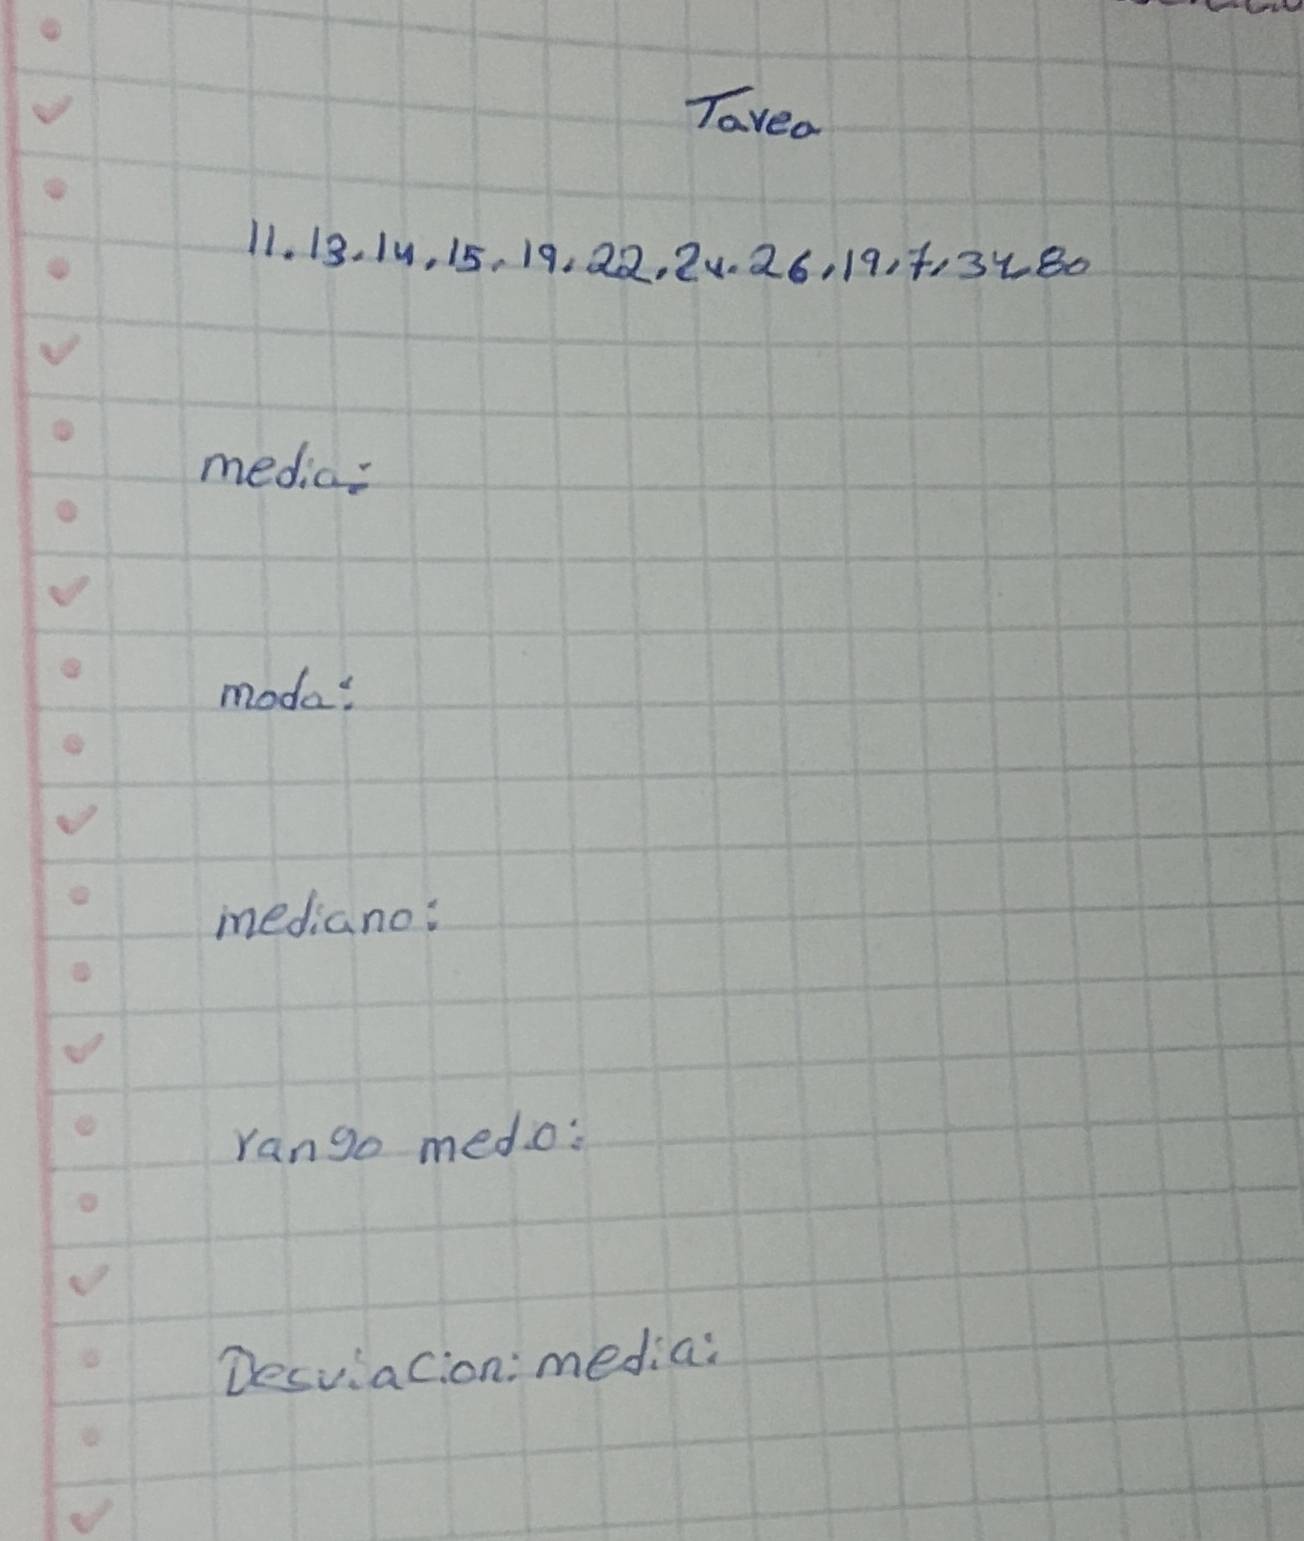 Tarea
11.13.14,15,19,22,24.26,19,7,34,80
media:
moda:
mediano:
rango medio:
Desviacion: media: